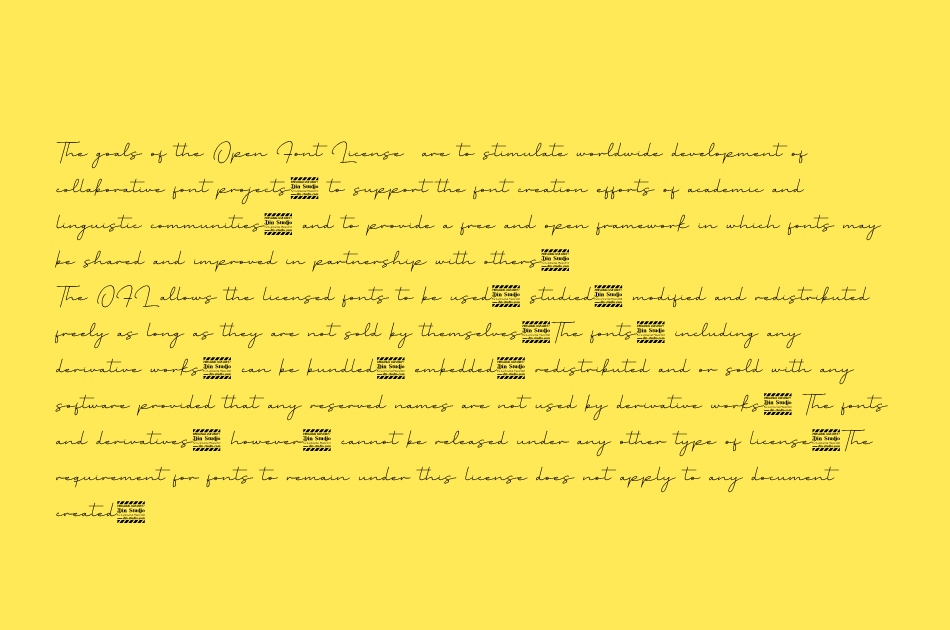 The goals of the Open Font License are to stimulate worldwide development of
collaborative font projects Din Studio to support the font creation efforts of academic and
linguistic communities Din Studio and to provide a free and open framework in which fonts may
be shared and improved in partnership with others Din Studio
The OFL allows the licensed fonts to be used Din Studio studied Din Studio modified and redistributed
freely as long as they are not sold by themselves Din Studio The fonts Din Studio including any
derivative works Din Studio can be bundled Din Studio embedded Din Studio redistributed and or sold with any
software provided that any reserved names are not used by derivative works Din Studio The fonts
and derivatives Din Studio however Din Studio cannot be released under any other type of license Din Studio The
requirement for fonts to remain under this license does not apply to any document
created Din Studio